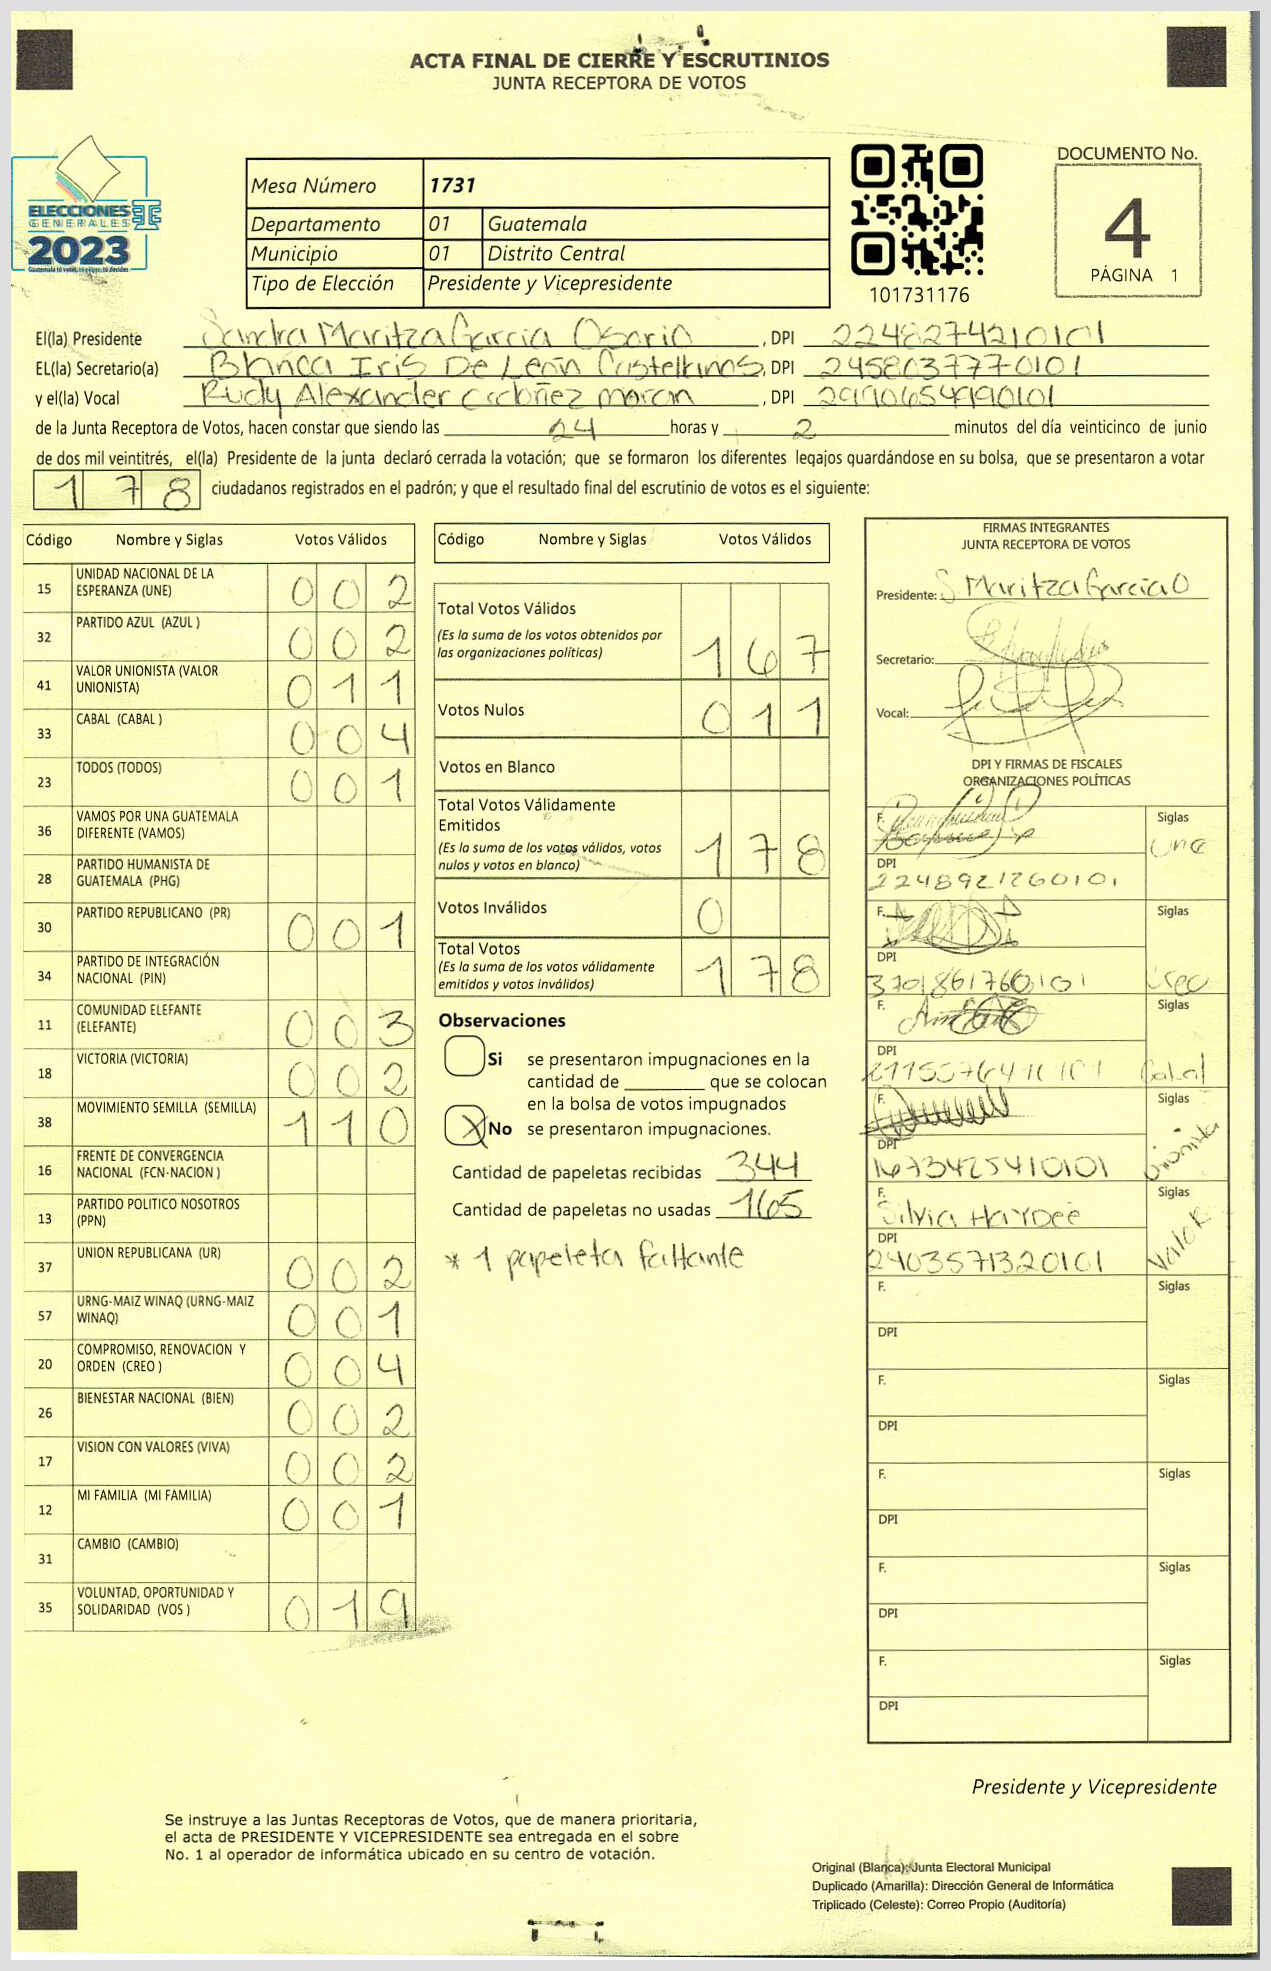 ACTA FINAL DE CIERRE Y ESCRUTINIOS
JUNTA RECEPTORA DE VOTOS
ELECCIONES
GENERALES
2023
Mesa Número 1731
Departamento 01 Guatemala
Municipio 01 Distrito Central
Tipo de Elección Presidente y Vicepresidente
101731176
DOCUMENTO No.
4
PÁGINA 1
El(la) Presidente Sandra Maritza Garcia Osorio, DPI 2248274210101
EL(la) Secretario(a) Blanca Iris De León Castellanos, DPI 2458037770101
y el(la) Vocal Rudy Alexander Ordoñez moran, DPI 2990654990101
de la Junta Receptora de Votos, hacen constar que siendo las 24 horas y 2 minutos del día veinticinco de junio
de dos mil veintitrés, el(la) Presidente de la junta declaró cerrada la votación; que se formaron los diferentes legajos quardándose en su bolsa, que se presentaron a votar
178 ciudadanos registrados en el padrón; y que el resultado final del escrutinio de votos es el siguiente:
Código Nombre y Siglas Votos Válidos
15 UNIDAD NACIONAL DE LA ESPERANZA (UNE) 002
32 PARTIDO AZUL (AZUL ) 002
41 VALOR UNIONISTA (VALOR UNIONISTA) 011
33 CABAL (CABAL ) 004
23 TODOS (TODOS) 001
36 VAMOS POR UNA GUATEMALA DIFERENTE (VAMOS)
28 PARTIDO HUMANISTA DE GUATEMALA (PHG)
30 PARTIDO REPUBLICANO (PR) 001
34 PARTIDO DE INTEGRACIÓN NACIONAL (PIN)
11 COMUNIDAD ELEFANTE (ELEFANTE) 003
18 VICTORIA (VICTORIA) 002
38 MOVIMIENTO SEMILLA (SEMILLA) 110
16 FRENTE DE CONVERGENCIA NACIONAL (FCN-NACION )
13 PARTIDO POLITICO NOSOTROS (PPN)
37 UNION REPUBLICANA (UR) 002
57 URNG-MAIZ WINAQ (URNG-MAIZ WINAQ) 001
20 COMPROMISO, RENOVACION Y ORDEN (CREO ) 004
26 BIENESTAR NACIONAL (BIEN) 002
17 VISION CON VALORES (VIVA) 002
12 MI FAMILIA (MI FAMILIA) 001
31 CAMBIO (CAMBIO)
35 VOLUNTAD, OPORTUNIDAD Y SOLIDARIDAD (VOS ) 019
Código Nombre y Siglas Votos Válidos
Total Votos Válidos 167
(Es la suma de los votos obtenidos por
las organizaciones políticas)
Votos Nulos 011
Votos en Blanco
Total Votos Válidamente
Emitidos 178
(Es la suma de los votos válidos, votos
nulos y votos en blanco)
Votos Inválidos 0
Total Votos 178
(Es la suma de los votos válidamente
emitidos y votos inválidos)
Observaciones
Si se presentaron impugnaciones en la
cantidad de ________ que se colocan
en la bolsa de votos impugnados
X No se presentaron impugnaciones.
Cantidad de papeletas recibidas 344
Cantidad de papeletas no usadas 165
* 1 papeleta faltante
FIRMAS INTEGRANTES
JUNTA RECEPTORA DE VOTOS
Presidente: S Maritza Garcia O
Secretario:
Vocal:
DPI Y FIRMAS DE FISCALES
ORGANIZACIONES POLÍTICAS
F. Siglas
Une
DPI
2248921260101
F. Siglas
DPI
3701861760101 Creo
F. Siglas
DPI
Cabal
F. Siglas
DPI
1673425410101 Unionista
F. Siglas
Silvia Haydeé
DPI Valor
2403571320101
F. Siglas
DPI
F. Siglas
DPI
F. Siglas
DPI
F. Siglas
DPI
F. Siglas
DPI
Presidente y Vicepresidente
Se instruye a las Juntas Receptoras de Votos, que de manera prioritaria,
el acta de PRESIDENTE Y VICEPRESIDENTE sea entregada en el sobre
No. 1 al operador de informática ubicado en su centro de votación.
Original (Blanca): Junta Electoral Municipal
Duplicado (Amarilla): Dirección General de Informática
Triplicado (Celeste): Correo Propio (Auditoría)